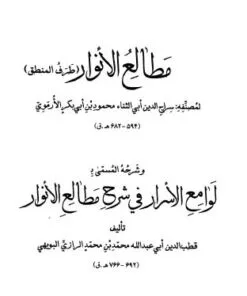 مطالع الأنوار (طرف المنطق)
لمصنفه: سراج الدين أبي الثناء محمود بن أبي بكر الأرموي
(٥٩٤ - ٦٨٢ هـ. ق)
وشرحه المسمى؛
لوامع الأسرار في شرح مطالع الأنوار
تأليف
قطب الدين أبي عبدالله محمد بن محمد الرازي البويهي
(٦٩٢ - ٧٦٦ هـ. ق)